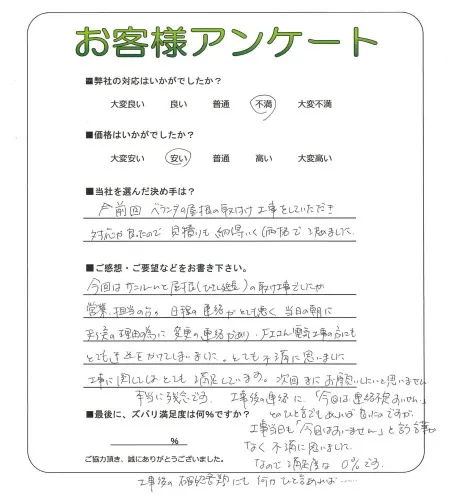 お客様アンケート
■弊社の対応はいかがでしたか？
大変良い　良い　普通　不満　大変不満
■価格はいかがでしたか？
大変安い　安い　普通　高い　大変高い
■当社を選んだ決め手は？
前回 ベランダの屋根の取付け工事をしていただき
対応が良かったので 見積りも 納得いく価格で 決めました
■ご感想・ご要望などをお書き下さい。
今回はサンルームと屋根の取付け工事でしたが
営業担当の方の 日程の連絡がとても悪く 当日の朝に
天候の理由の為に 変更の連絡があり、エアコン電気工事の方にも
とても迷惑をかけてしまいました。とても不満に思いました
工事に関してはとても満足しています。次回またお願いしたいと思いません
本当に残念です。工事後の連絡に、「今回は連絡不足ですいません」
とのひと言でもあれば良かったですが、
工事当日も「今日はすいません」と言う言葉
なく 不満に思いました。
なので満足度は 0%です。
■最後に、ズバリ満足度は何%ですか？
%
ご協力頂き、誠にありがとうございました。
工事後の確認書類にも 何かひと言あれば……